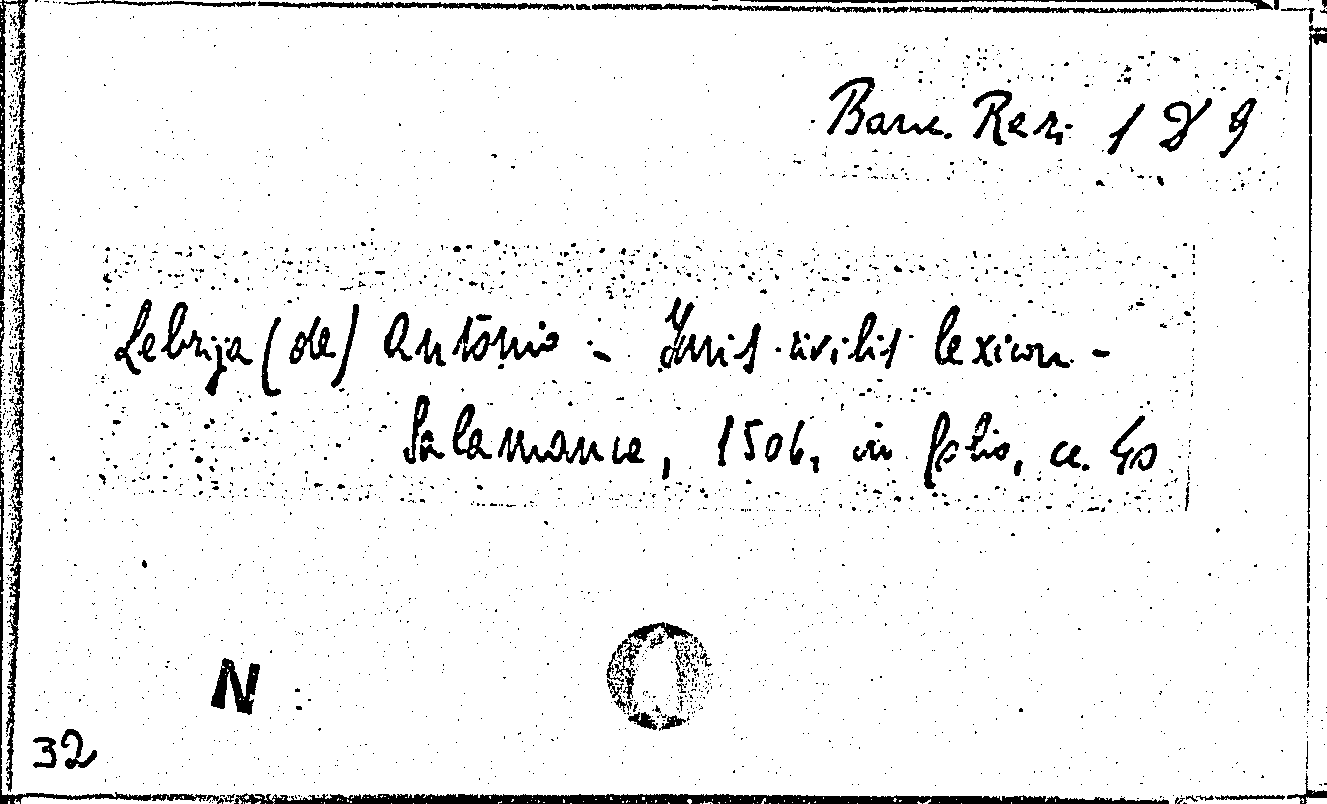 Banc. Rari 1 D 9
Lebrija (de) Antonio - Juris civilis lexicon -
Salamance, 1506, in folio, cc. 40
N
32